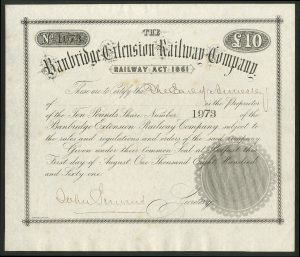 THE
No. 1973 £10
Banbridge Extension Railway Company
RAILWAY ACT 1861
These are to Certify that The Earl of
of is the Proprietor
of the Ten Pounds Share Number 1973 of the
Banbridge Extension Railway Company, subject to
the rules and regulations and orders of the said company
Given under their Common Seal at the
First day of August, One Thousand Eight Hundred
and Sixty one.
John Secretary